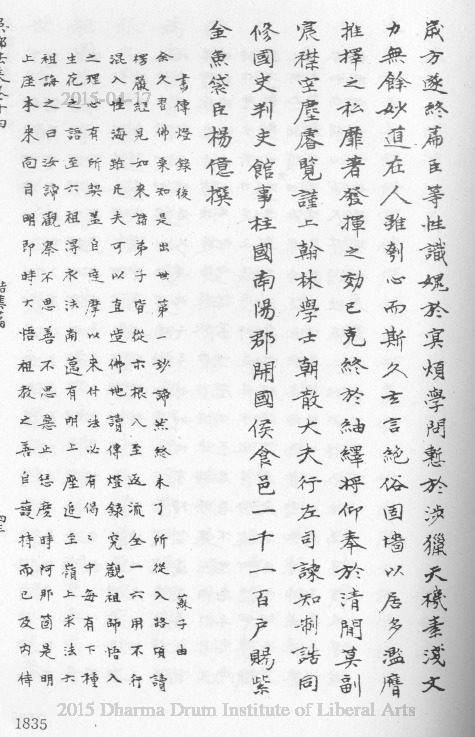 歲方遂終篇臣等性識媿於冥煩學問慙於涉獵天機素淺文
力無餘妙道在人雖刳心而斯久玄言絕俗固墻以居多濫膺
推擇之私靡著發揮之効已克終於紬繹將仰奉於清閒莫副
宸襟空塵睿覽謹上翰林學士朝散大夫行左司諫知制誥同
修國史判史館事柱國南陽郡開國侯食邑一千一百戶賜紫
金魚袋臣楊億撰
書傳燈錄後 蘇子由
余久習佛乘知是出世第一妙諦然終未了所從入路頃讀
楞嚴經見如來諸弟子皆從六根入至返流全一六用不行
混入性海雖凡夫可以直造佛地讀傳燈錄究觀祖師悟入
之理心有所契蓋自達摩以來付法必有偈〻中每有下種
生花之語至六祖得衣法南邁有明上座追至嶺上求法六
祖誨之曰汝諦觀察不思善不思惡正恁麼時阿那箇是明
上座本來面目明即時大悟祖教之善自護持而已及內侍
2015-04-17
1835
2015 Dharma Drum Institute of Liberal Arts